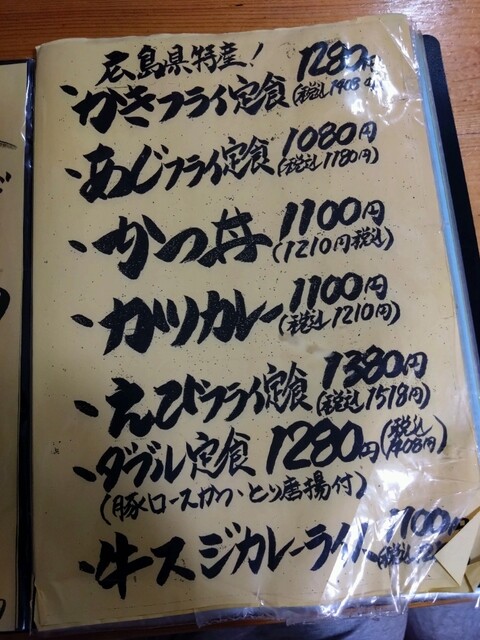 広島県特産!
・かきフライ定食 1280円
(税込1408円)
・あじフライ定食 1080円
(税込1180円)
・かつ丼 1100円
(1210円税込)
・カツカレー 1100円
(税込1210円)
・えびフライ定食 1380円
(税込1518円)
・ダブル定食 1280円(税込1408円)
(豚ロースかつ・とり唐揚付)
・牛スジカレーライス 1100円
(税込